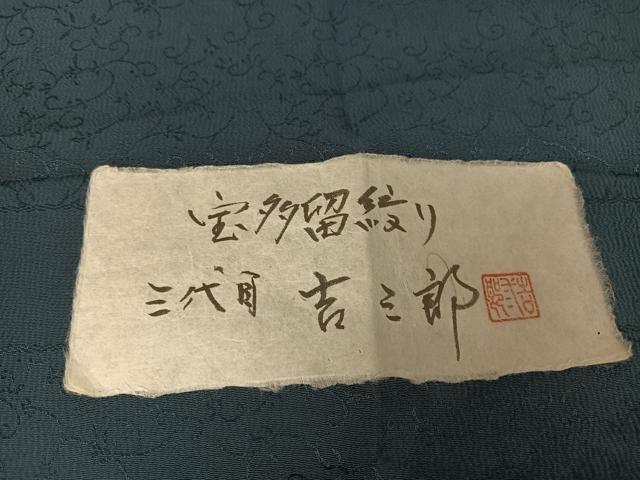 宝多留絞り
三代目 吉三郎